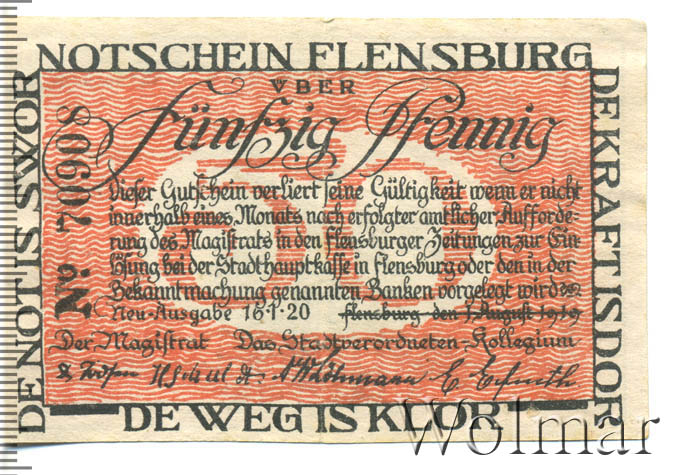 NOTSCHEIN FLENSBURG
ÜBER
Fünfzig Pfennig
Dieser Gutschein verliert seine Gültigkeit wenn er nicht
innerhalb eines Monats nach erfolgter amtlicher Aufforde-
rung des Magistrats in den Flensburger Zeitungen zur Ein-
lösung bei der Stadthauptkasse in Flensburg oder den in der
Bekanntmachung genannten Banken vorgelegt wird
Neu-Ausgabe 16·1·20 Flensburg den 1 August 1919
Der Magistrat Das Stadtverordneten-Kollegium
No 70908
DE NOT IS SWOR
DE KRAFT IS DOR
DE WEG IS KLOR!
Wolmar